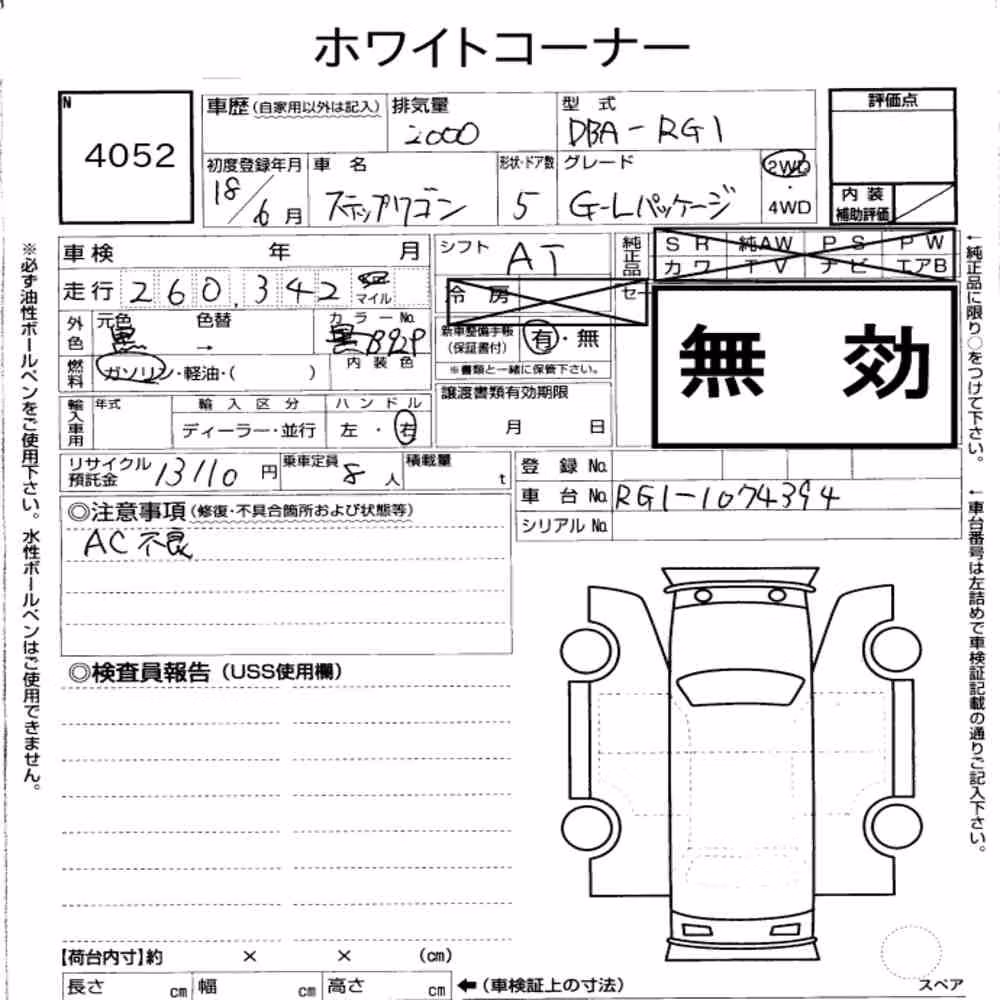 ホワイトコーナー
N
4052
車歴(自家用以外は記入) 排気量 2000 型 式 DBA-RG1
初度登録年月 18/6月 車 名 ステップワゴン 形状・ドア数 5 グレード G-Lパッケージ 2WD・4WD
評価点
内 装
補助評価
車検 年 月
走行 260,342 マイル
シフト AT
純正品
SR 純AW PS PW
カワ TV ナビ エアB
冷 房
セー
外色 元色 黒 → 色替 カラーNo. 黒 B92P
燃料 ガソリン・軽油・( )
内 装 色
新車整備手帳
(保証書付) 有・無
※書類と一緒に保管下さい。
無 効
輸入車用 年式 輸 入 区 分 ハ ン ド ル
ディーラー・並行 左・右
譲渡書類有効期限
月 日
リサイクル
預託金 13110 円 乗車定員 8 人 積載量 t
登 録 No.
車 台 No. RG1-1074394
シリアル No.
◎注意事項(修復・不具合箇所および状態等)
AC不良
◎検査員報告(USS使用欄)
【荷台内寸】約 × × (cm)
長さ cm 幅 cm 高さ cm ←(車検証上の寸法)
スペア
※必ず油性ボールペンをご使用下さい。水性ボールペンはご使用できません。
←純正品に限り○をつけて下さい。
←車台番号は左詰めで車検証記載の通りご記入下さい。